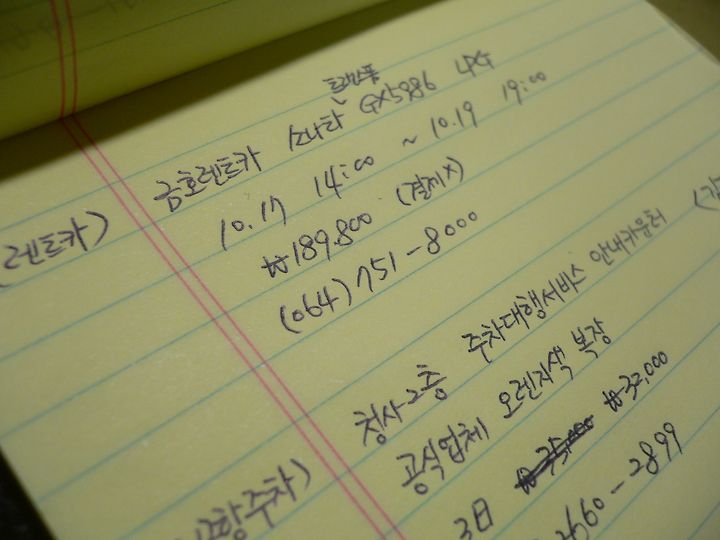 트랜스폼
렌트카) 금호렌트카 소나타 GX5986 LPG
10.17 14:00 ~ 10.19 19:00
₩189,800 (결제X)
(064) 751-8000
청사2층 주차대행서비스 안내카운터
공항주차) 공식업체 오렌지색 복장
3日 ₩35,000 ₩32,000
2660-2899